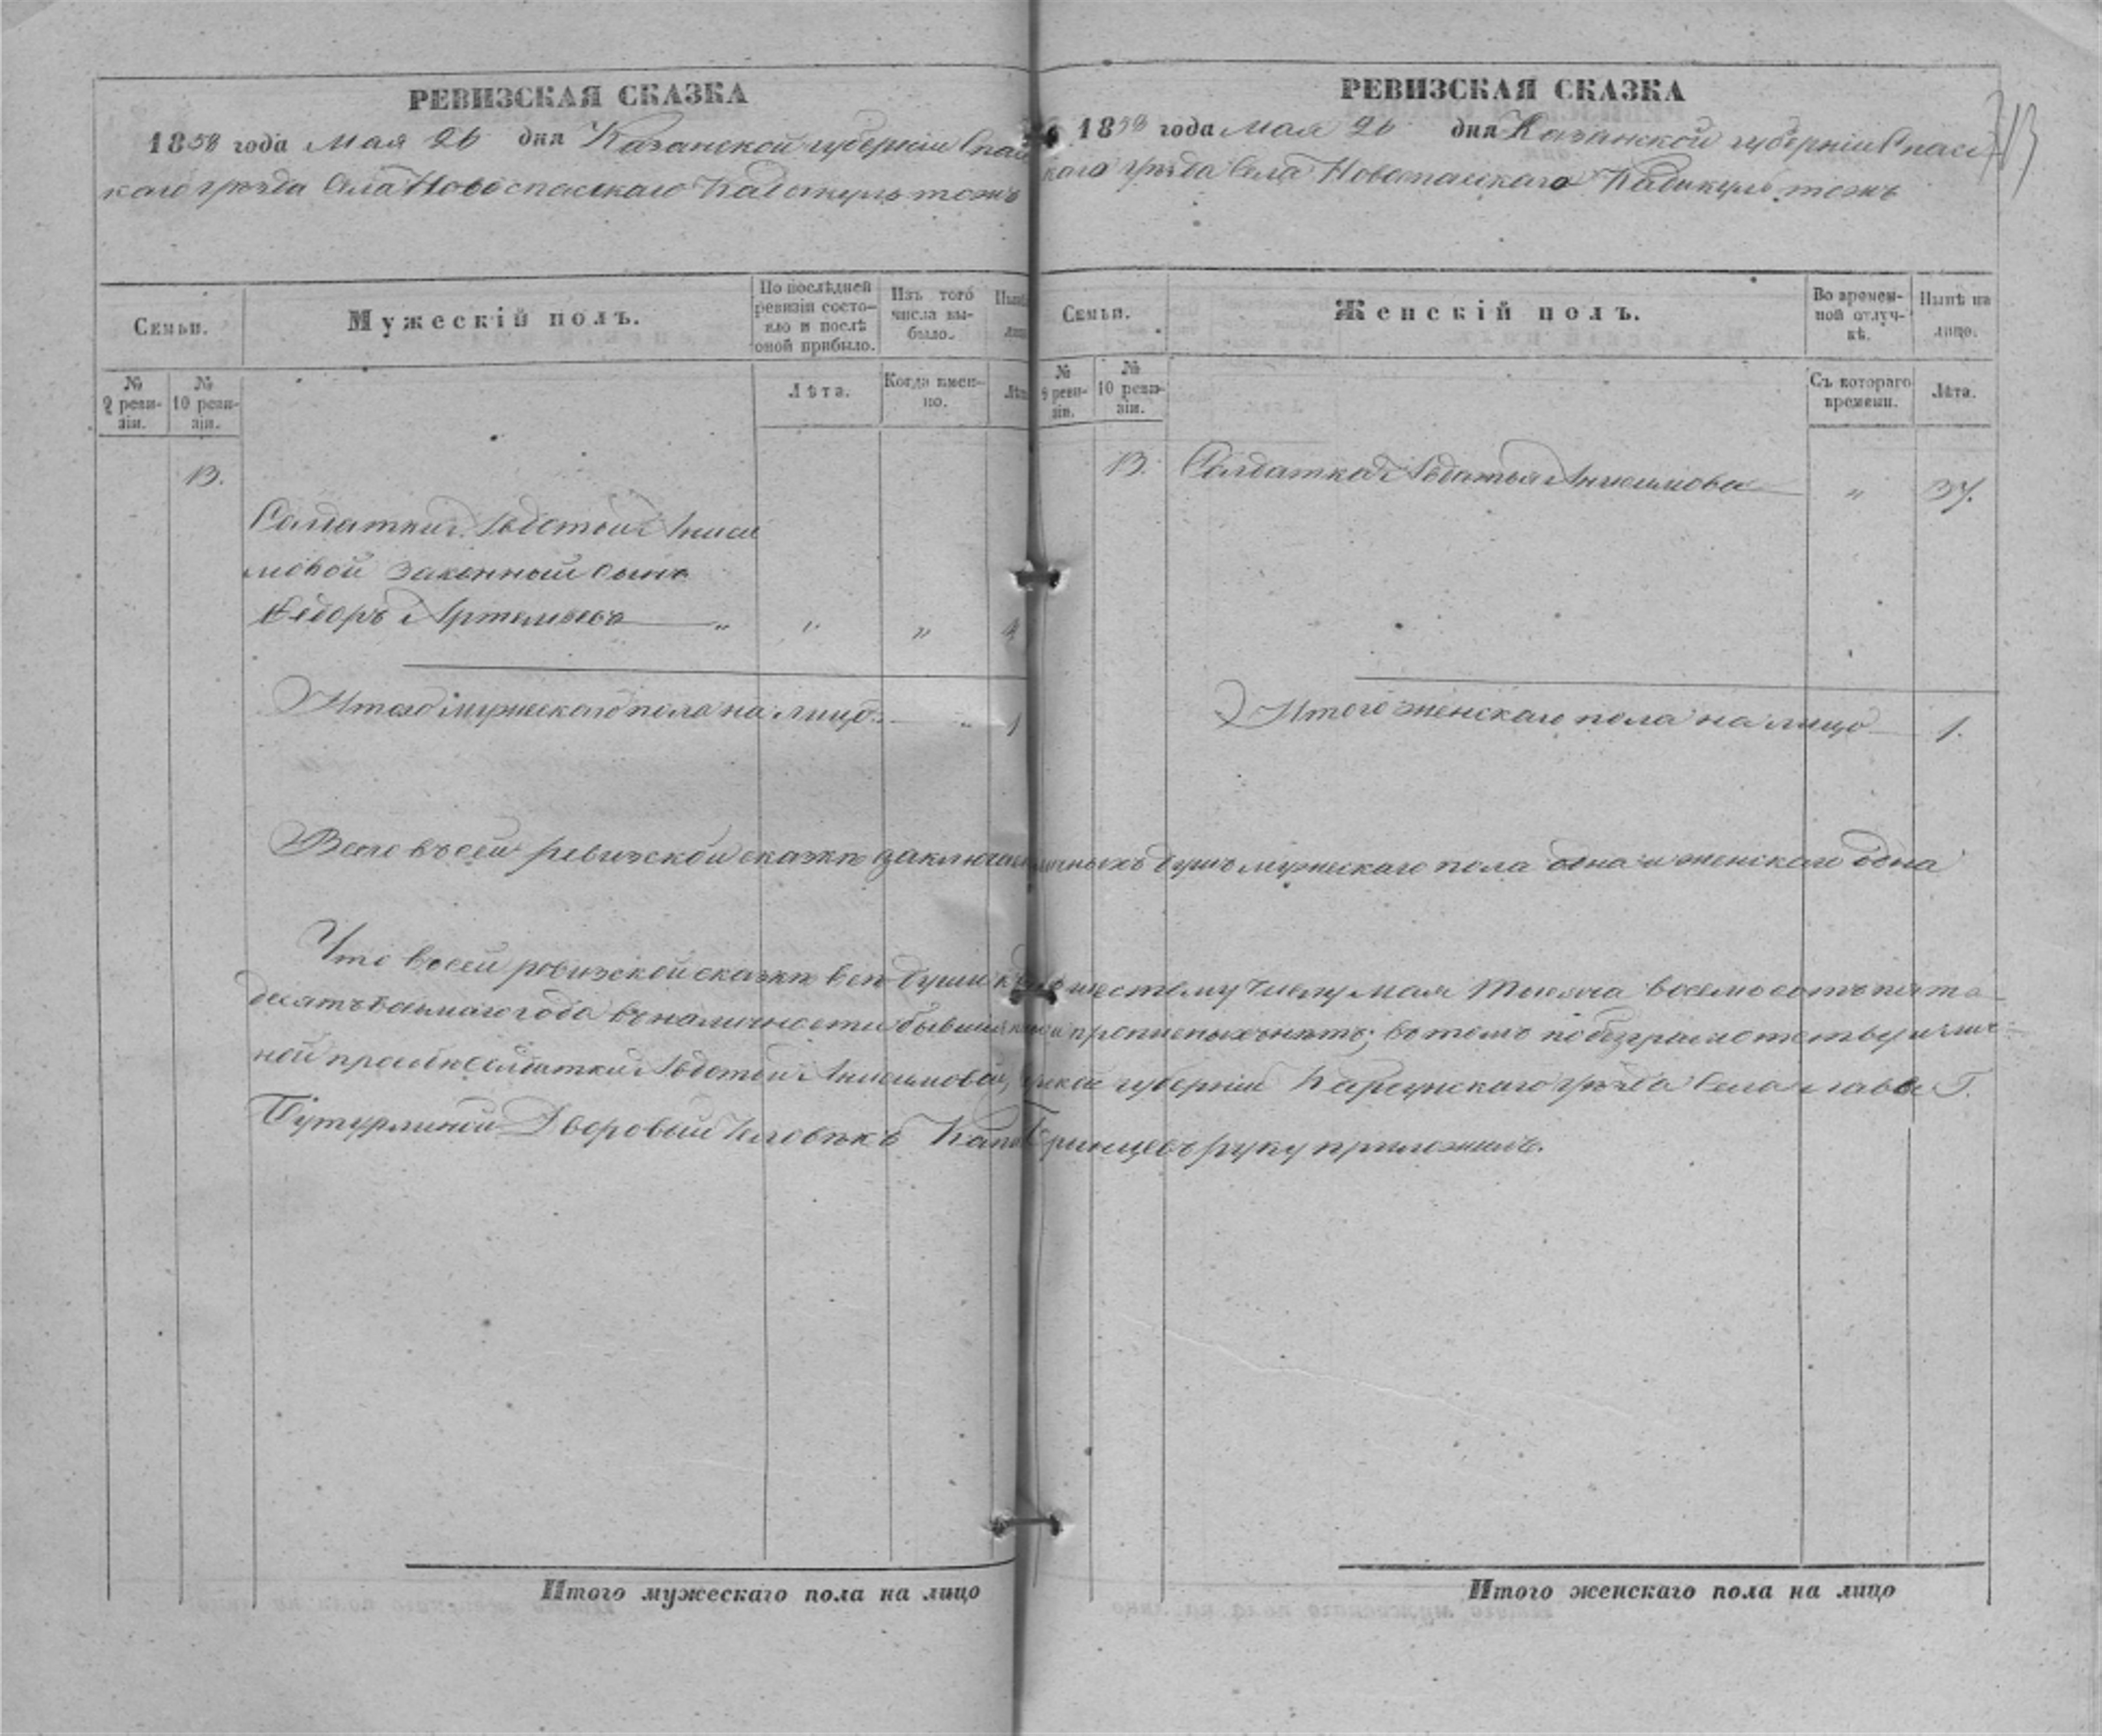 РЕВИЗСКАЯ СКАЗКА
1858 года Мая 26 дня Казанской губерніи Спас
каго уѣзда Села Новоспасскаго Кадыкуль тожъ
Семьи.
Мужескій полъ.
По послѣдней ревизіи состояло и послѣ оной прибыло.
Изъ того числа выбыло.
№ 9 ревизіи.
№ 10 ревизіи.
Лѣта.
Когда именно.
13.
Солдатки Авдотьи Аниси
мовой законный сынъ
Ѳедоръ Артемьевъ " " "
Итого мужескаго пола на лицо " 1
Итого мужескаго пола на лицо
РЕВИЗСКАЯ СКАЗКА
1858 года Мая 26 дня Казанской губерніи Спасс
каго уѣзда Села Новоспасскаго Кадыкуль тожъ
Семьи.
Женскій полъ.
Во временной отлучкѣ.
Нынѣ на лицо.
№ 9 ревизіи.
№ 10 ревизіи.
Съ котораго времени.
Лѣта.
13. Солдатка Авдотья Анисимова " 37.
Итого женскаго пола на лицо 1.
Всего въ сей ревизской сказкѣ наличныхъ душъ мужескаго пола одна и женскаго одна
Что въ сей ревизской сказкѣ всѣ души къ шестому числу мая тысяча восемь сотъ пять
десятъ восьмаго года въ наличности бывшія прописныхъ нѣтъ; въ томъ по безграмотству и лич
ной прозьбѣ солдатки Авдотьи Анисимовой, губерніи Карсунскаго уѣзда Села Г.
Бутурлиной Дворовый человѣкъ руку приложилъ.
Итого женскаго пола на лицо